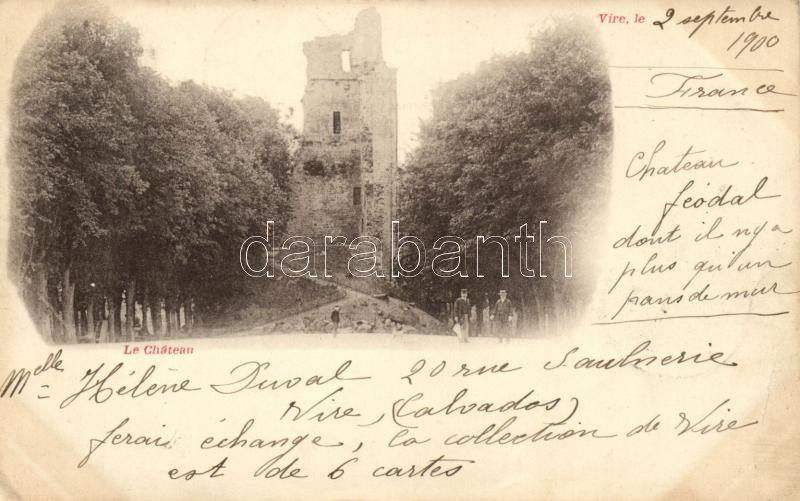 Vire, le 2 septembre
1900
France
Chateau
féodal
dont il n'y a
plus qu'un
pans de mur
darabanth
Le Château
Melle Hélène Duval 20 rue Saulnerie
Vire, (Calvados)
ferai échange, la collection de Vire
est de 6 cartes